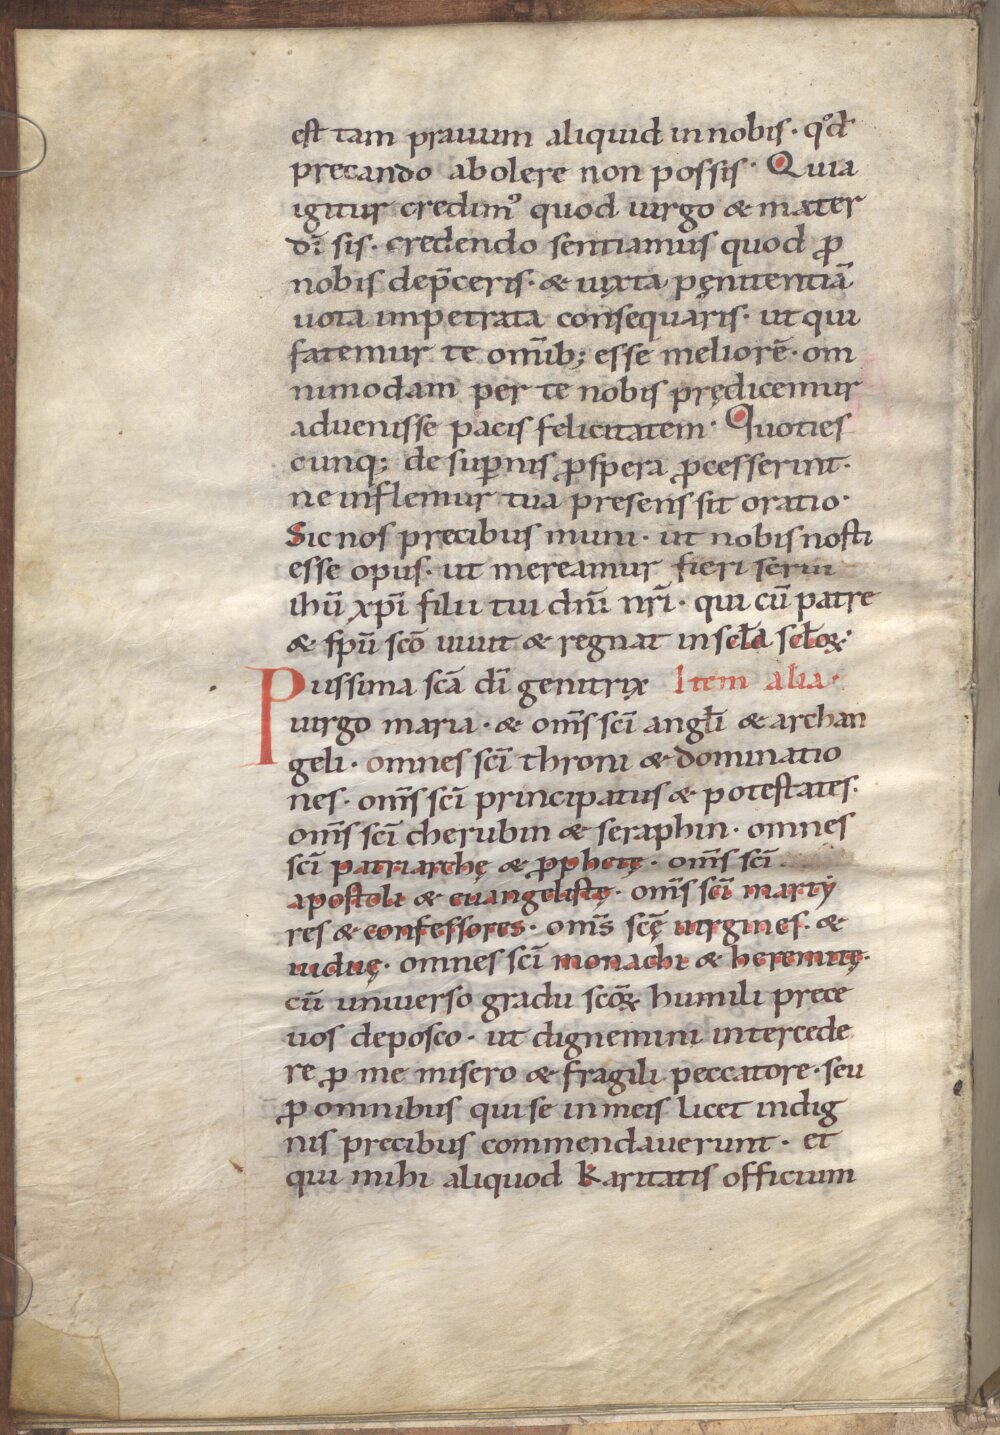 est tam prauum aliquid in nobis · qd̊
precando abolere non possis · Quia
igitur credim᷒ quod uirgo & mater
dı̄ sis · credendo sentiamus quod ꝓ
nobis dep̄ceris · & iuxta pęnitentiā
uota impetrata consequaris · ut qui
fatemur te om̄ib; esse meliorē · om
nimodam per te nobis prędicemur
aduenisse pacis felicitatem · Quoties
cunq; de sup̄nis ꝓspera ꝓcesserint ·
ne inflemur tua presens sit oratio ·
Sic nos precibus muni · ut nobis nosti
esse opus · ut mereamur fieri serui
ihū xp̄i filii tui dn̄i nr̄i · qui cū patre
& sp̄u scō uiuit & regnat in scl̄a scl̄oꝝ ·
Piissima scā dı̄ genitrix Item alia ·
uirgo maria · & om̄s scı̄ angl̄i & archan
geli · omnes scı̄ throni & dominatio
nes · om̄s scı̄ principatus & potestates ·
om̄s scı̄ cherubin & seraphin · omnes
scı̄ patriarchę & ꝓphetę · om̄s scı̄
apostoli & euangelistę · om̄s scı̄ marty
res & confessores · om̄s scę̄ uirgines · &
uiduę · omnes scı̄ monachi & heremitę ·
cū uniuerso gradu scōꝝ humili prece
uos deposco · ut dignemini intercede
re ꝓ me misero & fragili peccatore · seu
ꝓ omnibus qui se in meis licet indig
nis precibus commendauerunt · et
qui mihi aliquod karitatis officium